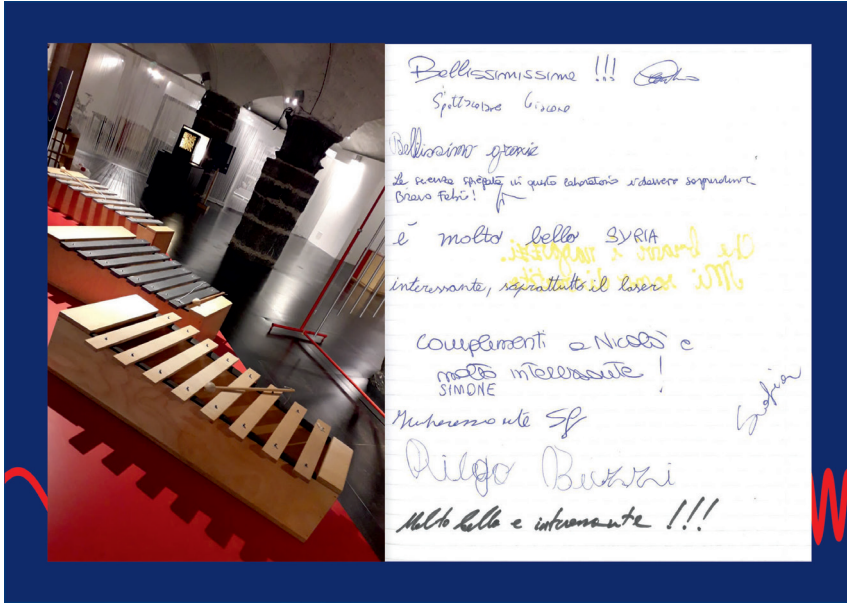 Bellissimissime !!!
Bellissimo grazie
La scienza spiegata in questo laboratorio è davvero sorprendente
Bravo Fabri!
è molto bello SYRIA
Che bravi i ragazzi.
Mi sono divertito
interessante, soprattutto il laser
complementi a Nicolò è
molto interessante !
SIMONE
Interessante
Sofia
Molto bello e interessante !!!